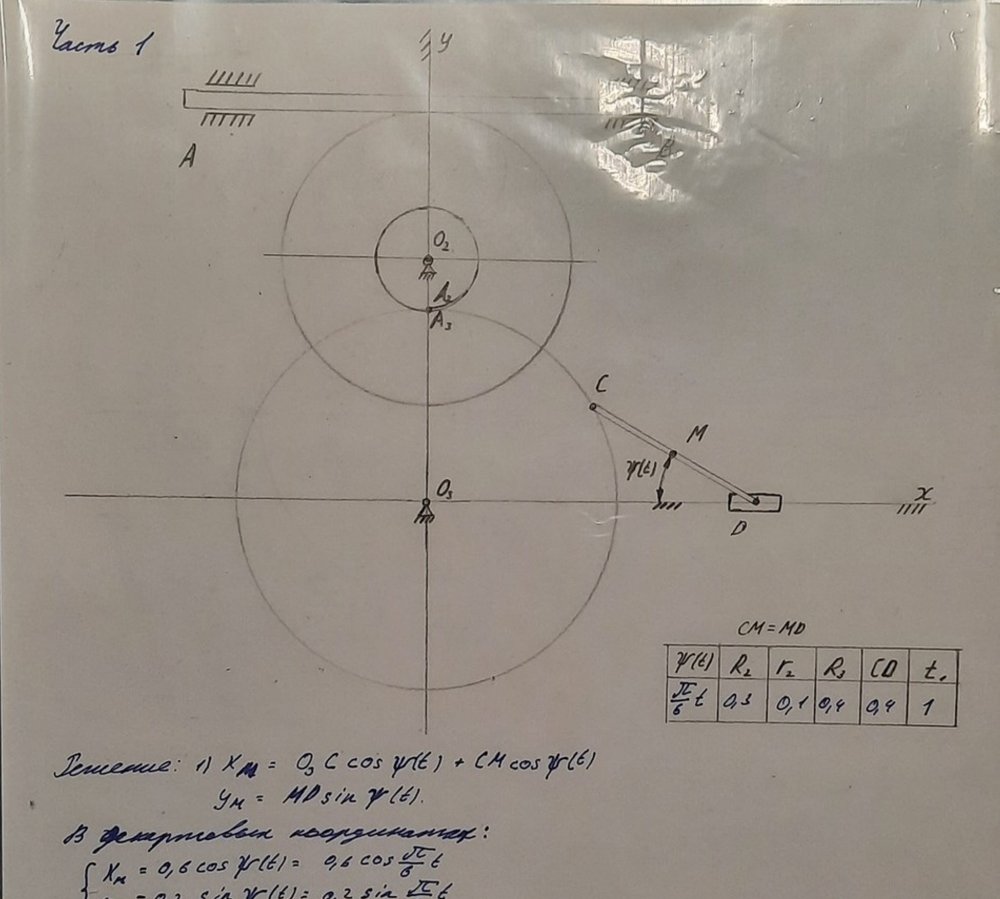 Часть 1
y
A
B
O₂
A₂
A₃
C
M
ψ(t)
O₃
x
D
CM = MD
ψ(t) R₂ r₂ R₃ CD t₁
π/6 t 0,3 0,1 0,4 0,4 1
Решение: 1) Xм = O₃C cos ψ(t) + CM cos ψ(t)
Yм = MD sin ψ(t).
В декартовых координатах:
Xм = 0,6 cos ψ(t) = 0,6 cos π/6 t
= 0,2 sin ψ(t) = 0,2 sin π/6 t